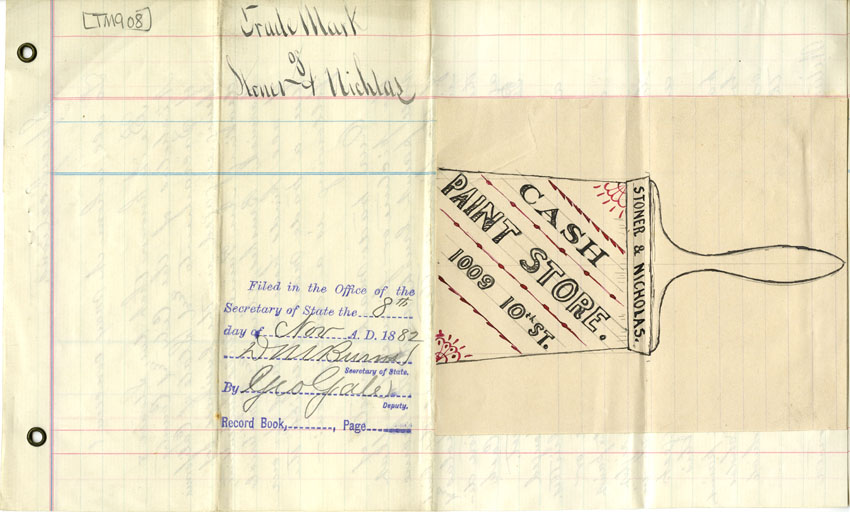 [TM908]
Trade Mark
of
Stoner & Nichlas
Filed in the Office of the
Secretary of State the 8th
day of Nov A. D. 1882
D M Burns
Secretary of State.
By Geo Gale
Deputy.
Record Book, , Page
CASH
PAINT STORE.
1009 10th ST.
STONER & NICHOLAS.